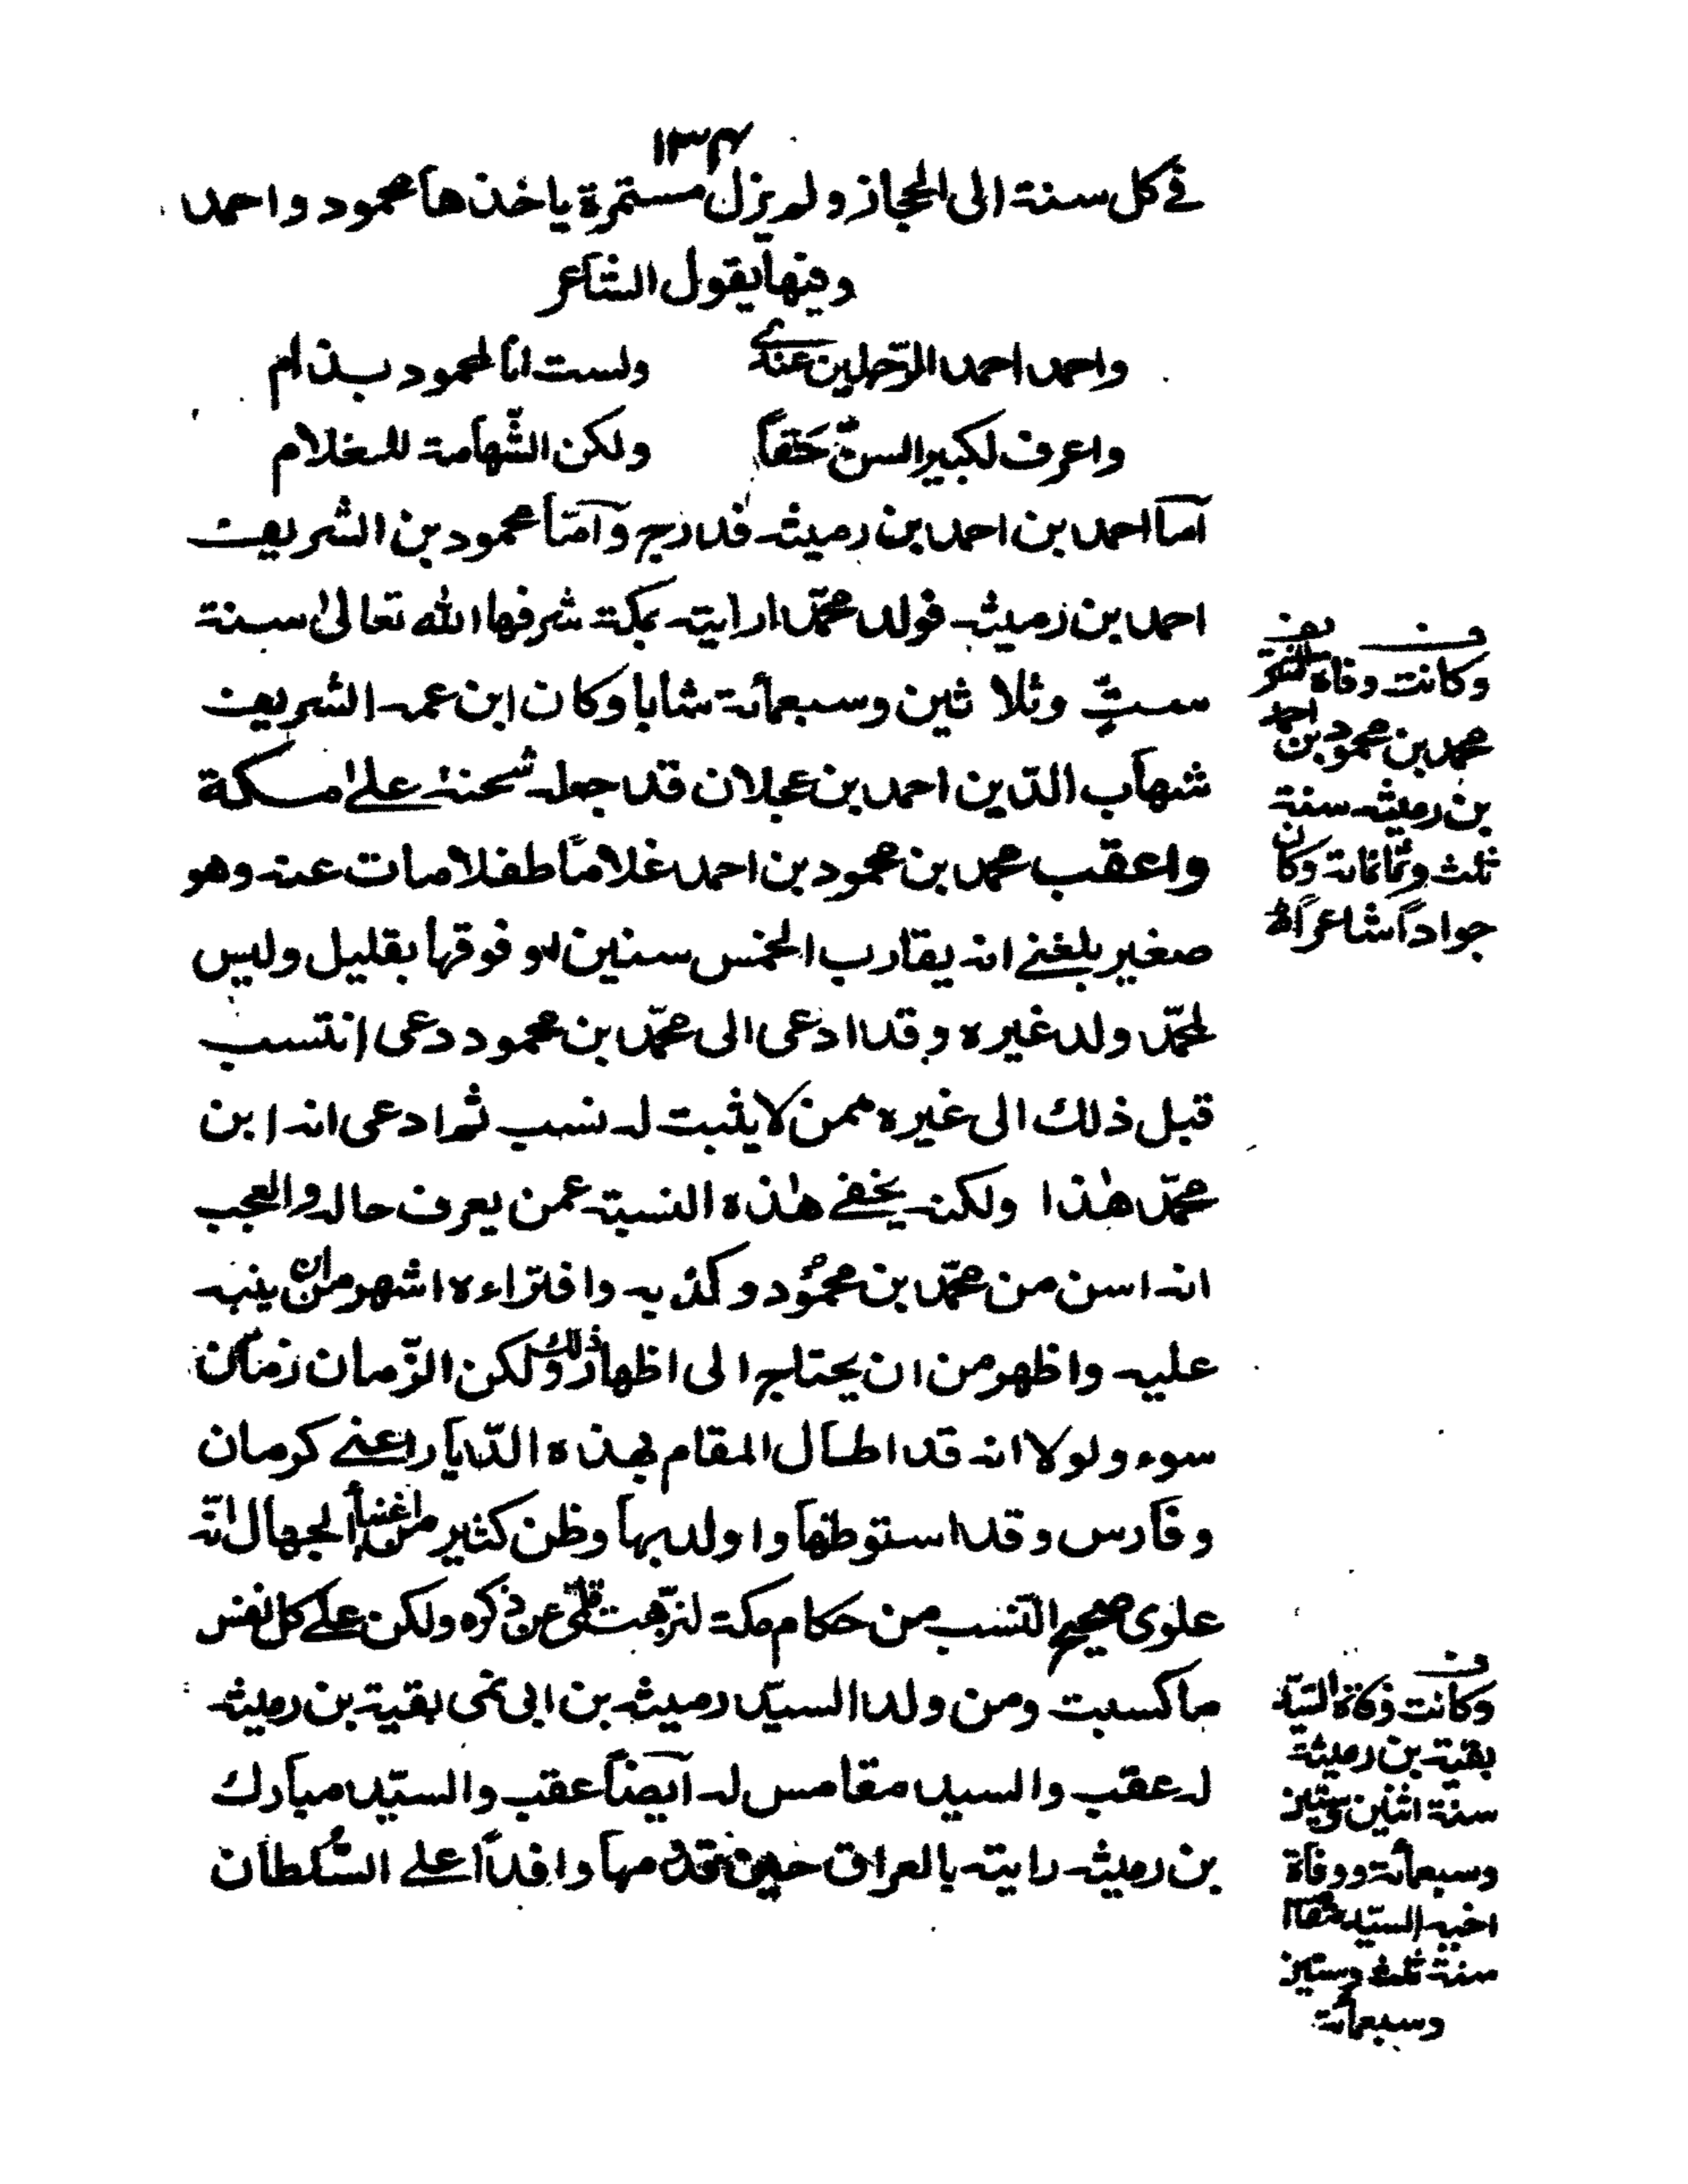 ١٣٤
في كل سنة الى الحجاز ولم يزل مستمرة ياخذها محمود واحمد
وفيها يقول الشاعر
واحمد احمد الرّجلين عندي ولست انا لمحمود بذام
واعرف لكبير السنّ حَقّاً ولكن الشّهامة للغلام
امّا احمد بن احمد بن رميثه فدرج وامّا محمود بن الشريف
احمد بن رميثه فولد محمّدا رايته بمكة شرفها الله تعالىٰ سنة
ستٍّ وثلاثين وسبعمائة شابا وكان ابن عمه الشريف
شهاب الدّين احمد بن عجلان قد جعله شحنة على مكة
واعقب محمد بن محمود بن احمد غلاماً طفلا مات عنه وهو
صغير بلغني انه يقارب الخمس سنين او فوقها بقليل وليس
لمحمّد ولد غيره وقد ادعى الى محمّد بن محمود دعى انتسب
قبل ذلك الى غيره ممن لا يثبت له نسب ثم ادعى انه ابن
محمّد هٰذا ولكنه يخفى هٰذه النسبة عمن يعرف حاله والعجب
انه اسن من محمّد بن محمُود وكذبه وافتراءه اشهر من ان ينبه
عليه واظهر من ان يحتاج الى اظهار ذلك ولكن الزّمان زمان
سوء ولولا انه قد اطال المقام بهذه الدّيار اعنى كرمان
وفارس وقد استوطنها واولد بها وظن كثير من اغنياء الجهال انّه
علوى صحيح النّسب من حكام مكة لنزّهت قلمى عن ذكره ولكن على كل نفس
ما كسبت ومن ولد السيّد رميثه بن ابى نمى بقية بن رميثه
له عقب والسيد مقامس له ايضاً عقب والسيّد مبارك
بن رميثه رايته بالعراق حين قدمها وافداً على السّلطان
وكانت وفاة
محمد بن محمود بن احمد
بن رميثه سنة
ثلث وثمانمائة وكان
جواداً شاعراً
وكانت وفاة السيّد
بقية بن رميثة
سنة اثنين وستين
وسبعمائة ووفاة
اخيه السيّد مقامس
سنة ثلث وستين
وسبعمائة